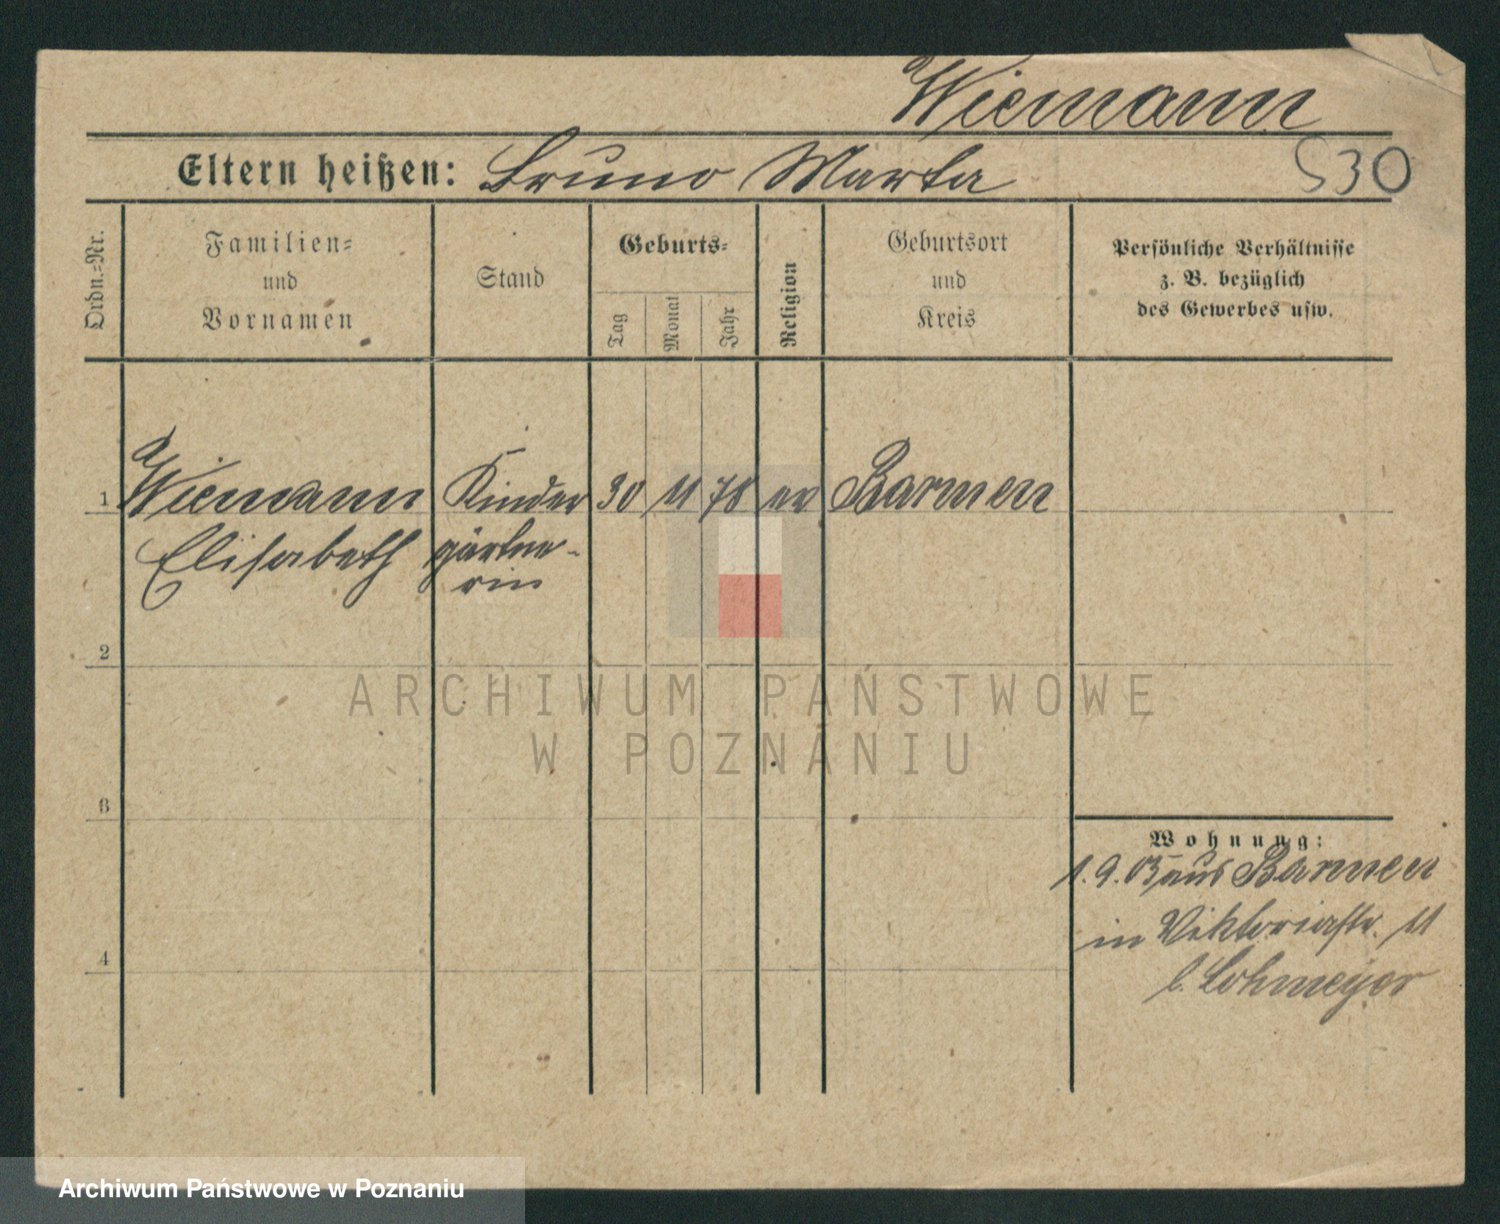 Wiemann
Eltern heißen: Bruno Marta
530
Ordn.=Nr.
Familien=
und
Vornamen
Stand
Geburts=
Tag
Monat
Jahr
Religion
Geburtsort
und
Kreis
Persönliche Verhältnisse
z. B. bezüglich
des Gewerbes usw.
1 Wiemann Kinder 30 11 78 ev Barmen
Elisabeth gärtne-
rin
2
ARCHIWUM PAŃSTWOWE
W POZNANIU
3
Wohnung:
1.9.05 aus Barmen
in Viktoriastr. 11
b. Lohmeyer
4
Archiwum Państwowe w Poznaniu